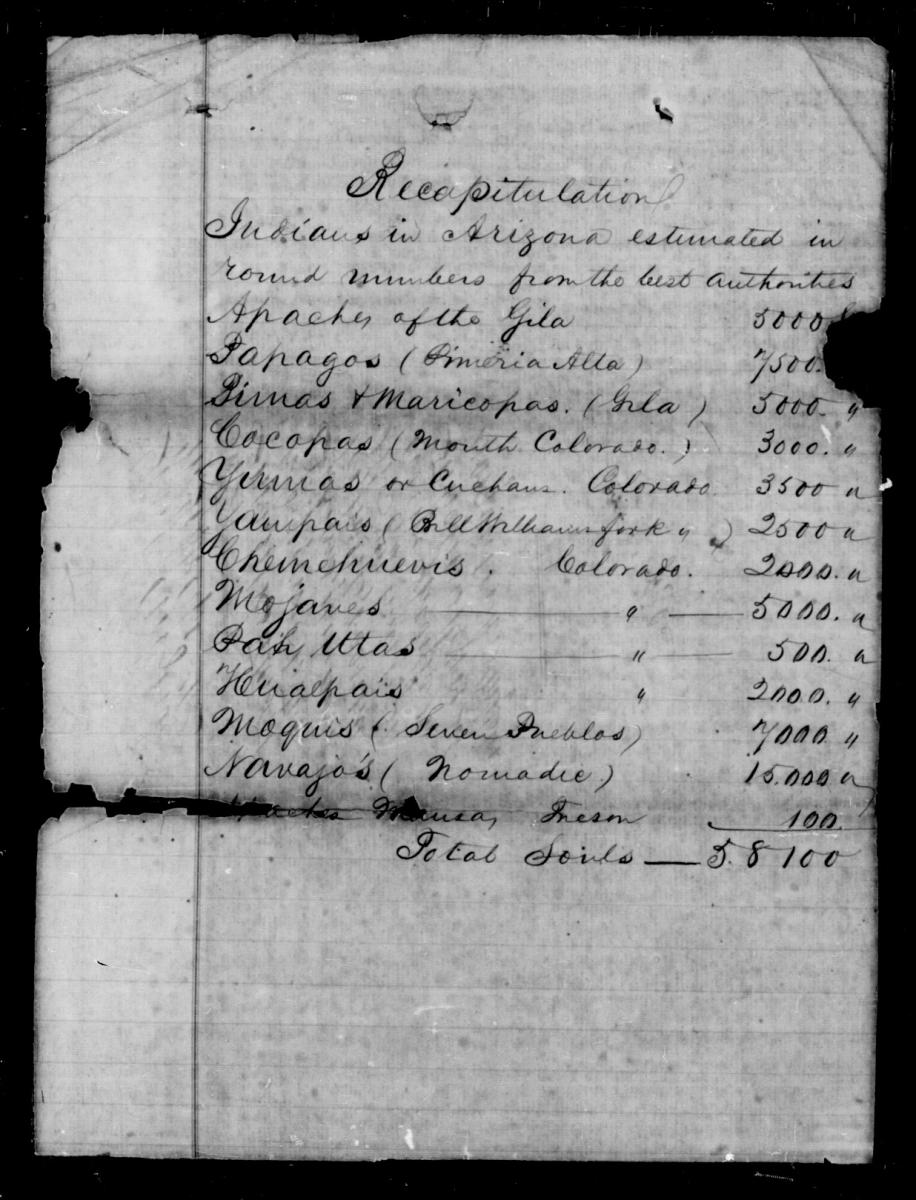 Recapitulation
Indians in Arizona estimated in
round numbers from the best authorities
Apaches of the Gila 5000
Papagos (Pimeria Alta) 7500.
Pimas & Maricopas. (Gila) 5000. "
Cocopas (Mouth Colorado.) 3000. "
Yumas or Cuchans. Colorado. 3500 "
Yampais (Bill Williams fork ") 2500 "
Chemehuevis. Colorado. 2000. "
Mojaves " 5000. "
Pah Utas " 500. "
Hualpais " 2000. "
Moquis (Seven Pueblos) 7000. "
Navajo's (Nomadic) 15.000 "
Mansas, Tucson 100.
Total Souls — 5.8100